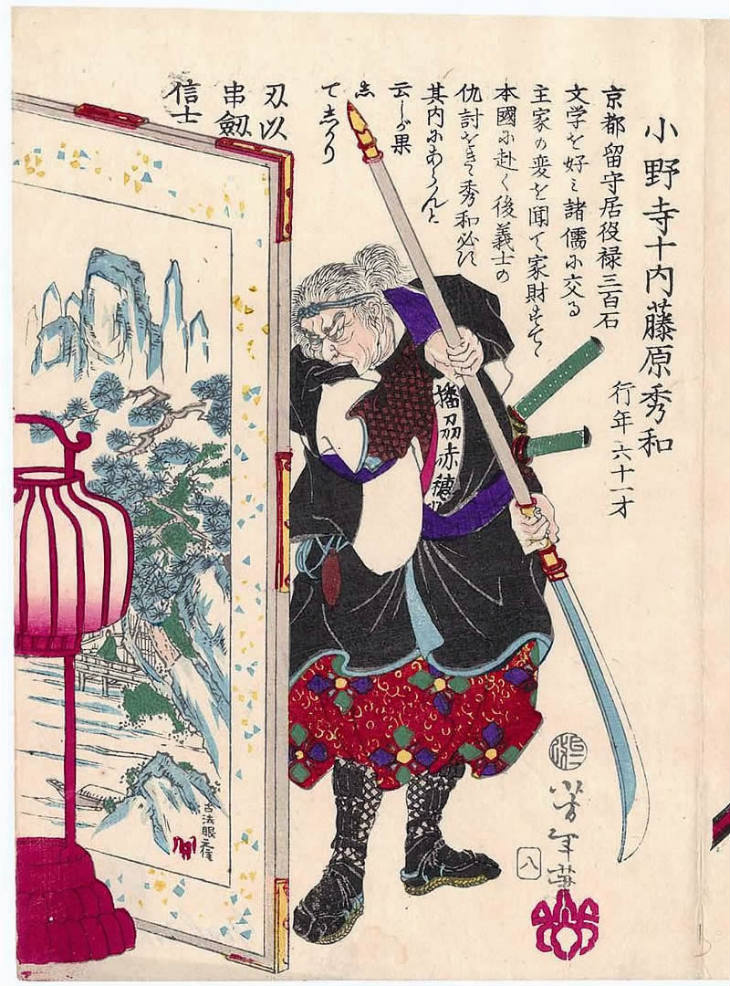 小野寺十内藤原秀和
行年六十一才
京都留守居役禄三百石
文学を好ミ諸儒に交る
主家の変を聞て家財をすて
本國に赴く後義士の
仇討をきく秀和必ず
其内にあらんと
云しが果
して
刄以
串劔
信士
播刕赤穂
古法眼元信
芳年
八